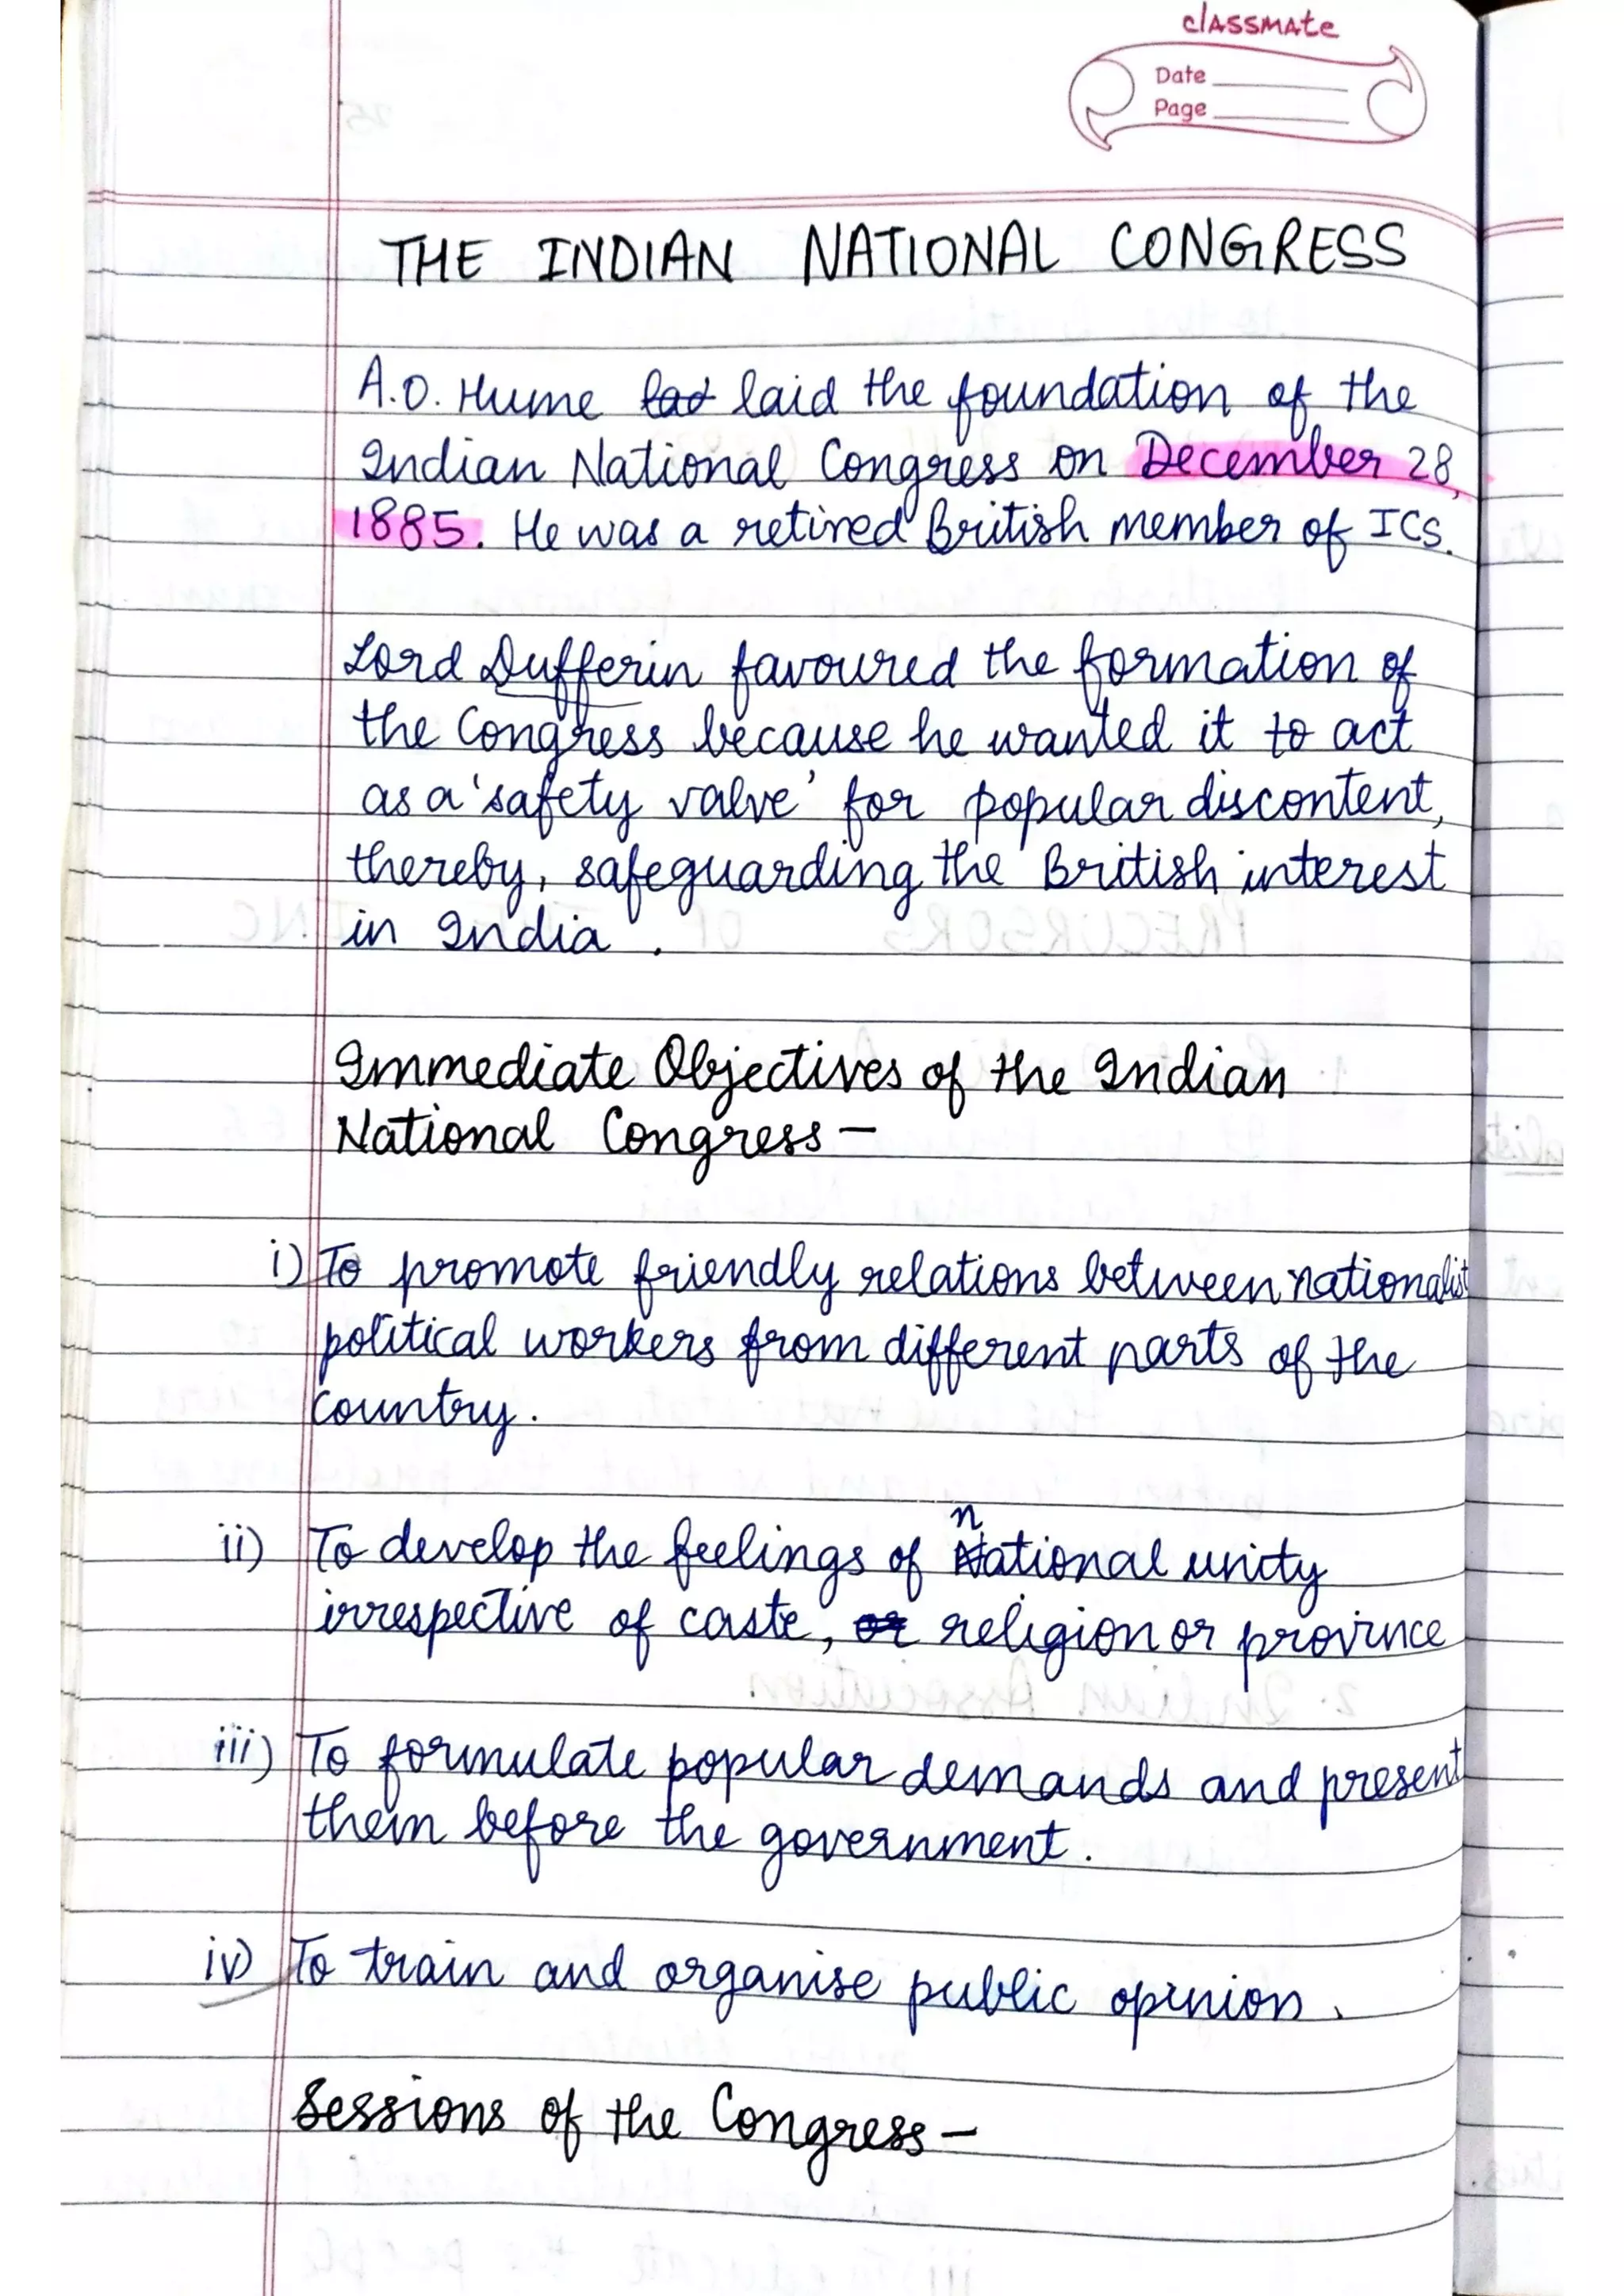 classmate
Date
Page
THE INDIAN NATIONAL CONGRESS
A.O. Hume laid the foundation of the
Indian National Congress on December 28,
1885. He was a retired British member of ICS.
Lord Dufferin favoured the formation of
the Congress because he wanted it to act
as a 'safety valve' for popular discontent,
thereby, safeguarding the British interest
in India.
Immediate Objectives of the Indian
National Congress –
i) To promote friendly relations between nationalist
political workers from different parts of the
country.
ii) To develop the feelings of national unity
irrespective of caste, or religion or province
iii) To formulate popular demands and present
them before the government.
iv) To train and organise public opinion.
Sessions of the Congress –